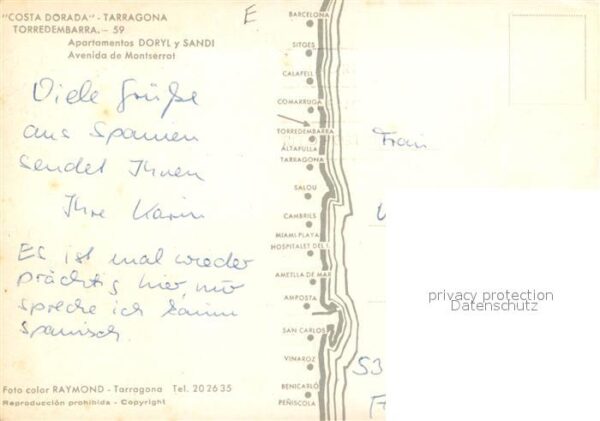 E
"COSTA DORADA" - TARRAGONA
TORREDEMBARRA. - 59
Apartamentos DORYL y SANDI
Avenida de Montserrat
Viele Grüße
aus Spanien
sendet Ihnen
Ihre Karin
Es ist mal wieder
prächtig hier, nur
spreche ich kaum
spanisch.
Foto color RAYMOND - Tarragona Tel. 20 26 35
Reproducción prohibida - Copyright
BARCELONA
SITGES
CALAFELL
COMARRUGA
TORREDEMBARRA
ALTAFULLA
TARRAGONA
SALOU
CAMBRILS
MIAMI PLAYA
HOSPITALET DEL I.
AMETLLA DE MAR
AMPOSTA
SAN CARLOS
VINAROZ
BENICARLÓ
PEÑISCOLA
Frau
privacy protection
Datenschutz
53